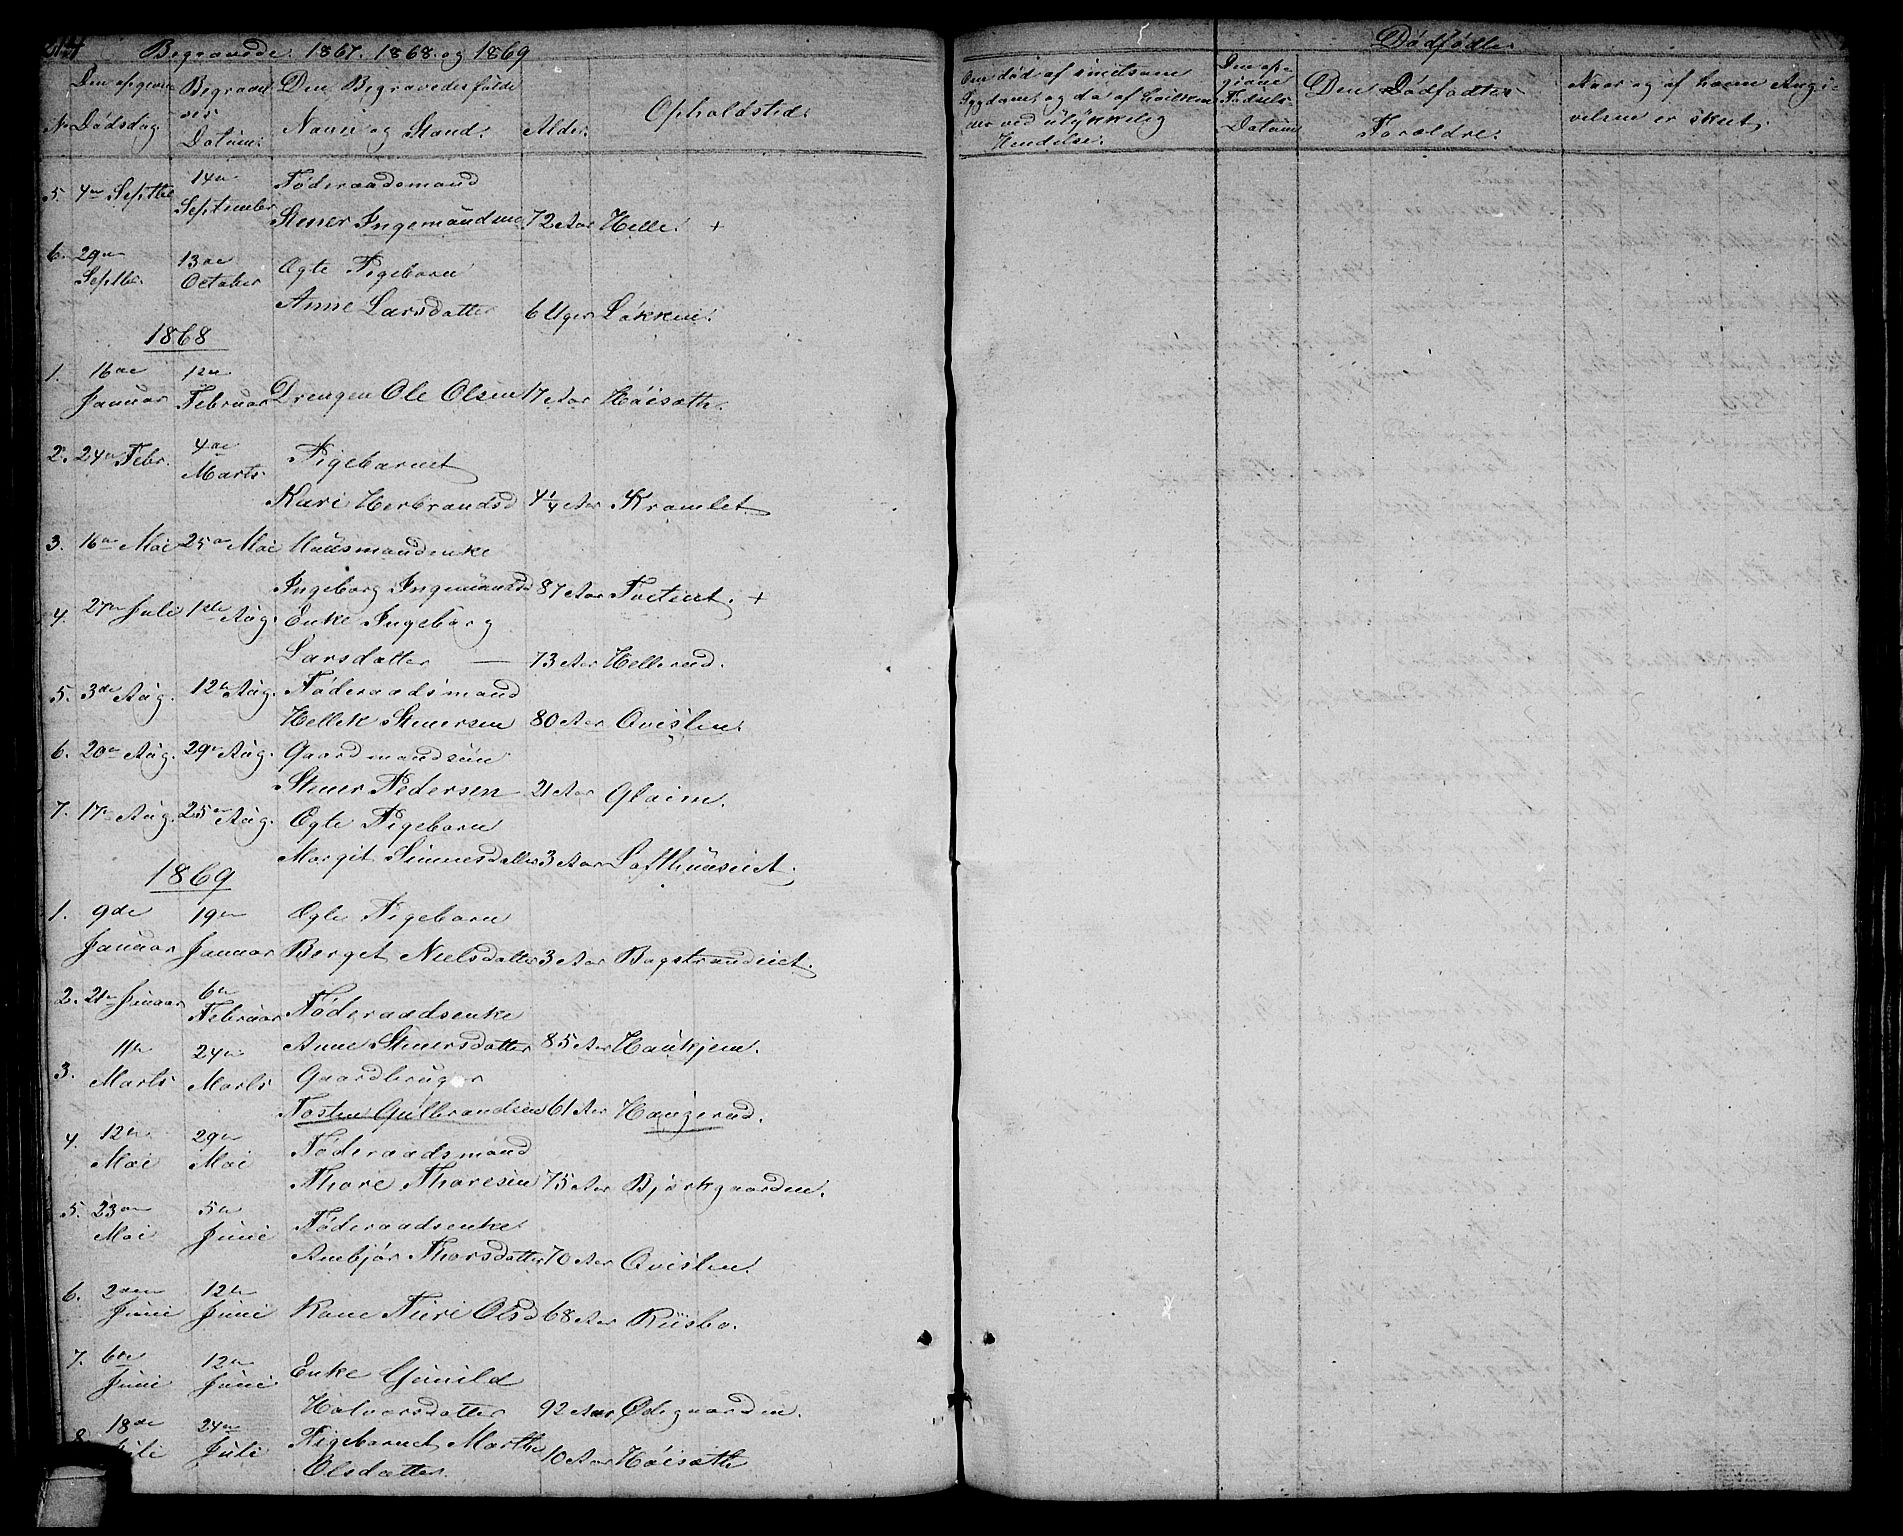 Begravede 1867. 1868. og 1869
Den opgivne Dødsdag.
Begravelses Datum.
Den Begravedes fulde Navn og Stand.
Alder.
Opholdsted.
Om død af smitsom Sygdom, og da af hvilken
eller ved ulykkelig Hendelse.
Dødfødte.
Den opgivne Fødsels Datum
Den Dødfødtes Forældre.
Naar og af hvem Angivelsen er skeet.
5. 4de Septbr 14de September Føderaadsmand
Stener Ingemundsen 72 Aar Helle. +
6. 29de Septbr. 13de October Ægte Pigebarn
Anne Larsdatter 6 Uger Løkken.
1868
1. 16de Januar 12te Februar Drengen Ole Olsen 17 Aar Höisæth.
2. 24de Febr. 4de Marts Pigebarnet
Kari Herbrandsd 4 1/4 Aar Kramlet
3. 16de Mai 25de Mai Huusmandenke
Ingeborg Ingemundsd 87 Aar +
4. 27de Juli 1ste Aug. Enke Ingeborg
Larsdatter — 73 Aar Hellerud.
5. 3de Aug. 12te Aug. Føderaadsmand
Hellek Stenersen 80 Aar Qvislen.
6. 20de Aug. 29de Aug. Gaardmandssøn
Stener Pedersen 21 Aar Glaim.
7. 17de Aug. 25de Aug. Ægte Pigebarn
Margit Simensdatter 3 Aar Lofthuuseiet.
1869
1. 9de Januar 19de Januar Ægte Pigebarn
Berget Nielsdatter 3 Aar Bagstrandeiet.
2. 21de Januar 6te Februar Føderaadsenke
Anne Stenersdatter 85 Aar Haukjem.
3. 11te Marts 24de Marts Gaardbruger
Tosten Gulbrandsen 61 Aar Haugerud.
4. 12te Mai 29de Mai Føderaadsmand
Thore Thoresen 75 Aar Bjørkgaarden.
5. 23de Mai 5te Juni Føderaadsenke
Ambjør Thorsdatter 70 Aar Qvislen.
6. 2den Juni 12te Juni Kone Turi Olsd 68 Aar Riisbo.
7. 6te Juni 12te Juni Enke Gunild
Halvorsdatter 92 Aar Ødegaarden.
8. 18de Juli 24de Juli Pigebarnet Marthe
Olsdatter. 10 Aar Höisæth